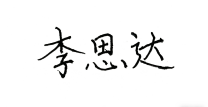 李思达